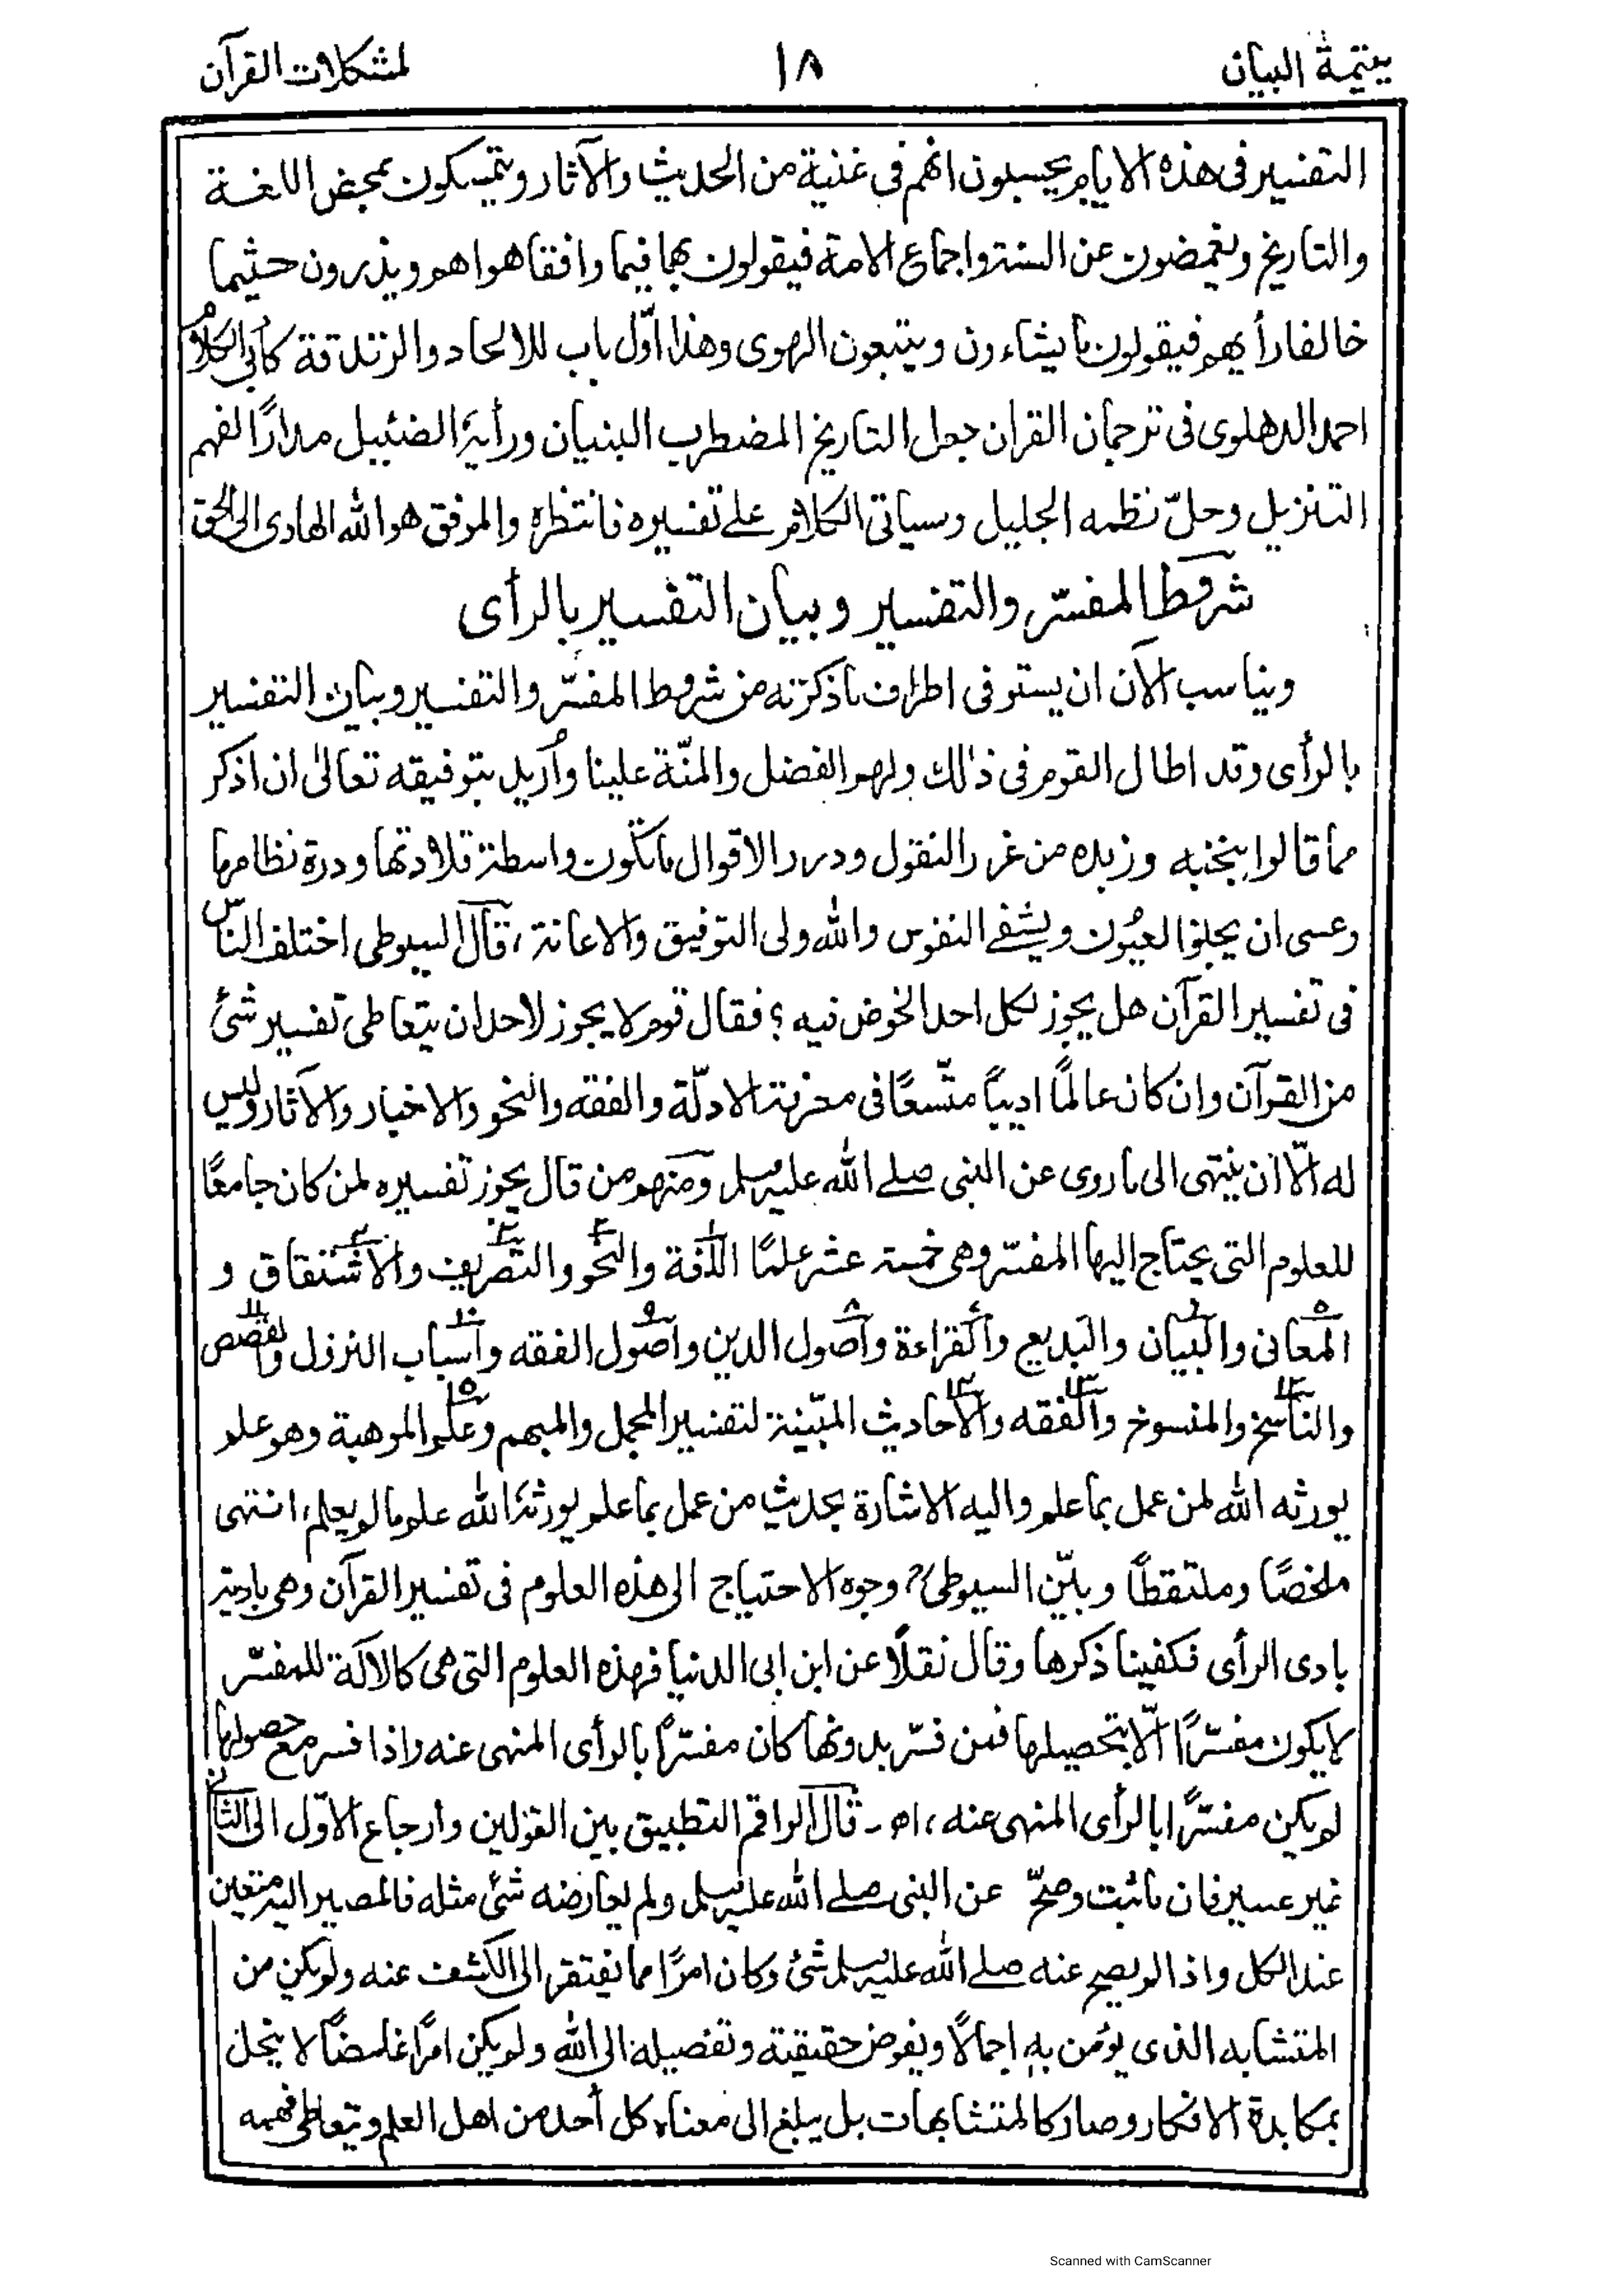 يتيمة البيان ١٨ لمشكلات القرآن
التفسير فى هذه الايام يحسبون انهم فى غنية من الحديث والآثار ويتمسكون بمحض اللغة
والتاريخ ويغمضون عن السنة واجماع الامة فيقولون بهما فيما وافقا هواهم ويذرون حيثما
خالفا رأيهم فيقولون ما يشاءون ويتبعون الهوى وهذا اوّل باب للالحاد والزندقة كأبى الكلام
احمد الدهلوى فى ترجمان القران جعل التاريخ المضطرب البنيان ورأيه الضئيل مدارًا لفهم
التنزيل وحلّ نظمه الجليل وسيأتى الكلام على تفسيره فانتظره والموفق هو الله الهادى الى الحق
شروط المفسّر والتفسير وبيان التفسير بالرأى
ويناسب الآن ان يستوفى اطراف ما ذكرته من شروط المفسّر والتفسير وبيان التفسير
بالرأى وقد اطال القوم فى ذٰلك ولهم الفضل والمنّة علينا وأريد بتوفيقه تعالىٰ ان اذكر
مما قالوا بنخبه وزبده من غرر النقول ودرر الاقوال ما تكون واسطة قلادتها ودرة نظامها
وعسى ان يجلو العيُون ويشفے النفوس والله ولى التوفيق والاعانة، قال السيوطى اختلف الناس
فى تفسير القرآن هل يجوز لكل احد الخوض فيه؟ فقال قوم لا يجوز لاحد ان يتعاطى تفسير شئ
من القرآن وان كان عالمًا اديبًا متّسعًا فى معرفة الادلّة والفقه والنحو والاخبار والآثار وليس
له الّا ان ينتهى الى ما روى عن النبى صلے الله عليه وسلم ومنهم من قال يجوز تفسيره لمن كان جامعًا
للعلوم التى يحتاج اليها المفسّر وهى خمسة عشر علمًا اللغة والنحو والتصريف والاشتقاق و
المعانى والبيان والبديع والقراءة واصول الدين واصول الفقه واسباب النزول والقصص
والناسخ والمنسوخ والفقه والاحاديث المبيّنة لتفسير المجمل والمبهم وعلم الموهبة وهو علم
يورثه الله لمن عمل بما علم واليه الاشارة بحديث من عمل بما علم يورثه الله علم ما لم يعلم، انتهى
ملخصًا وملتقطًا وبيّن السيوطىؒ وجوه الاحتياج الى هذه العلوم فى تفسير القرآن وهى بادية
بادى الرأى فكفينا ذكرها وقال نقلًا عن ابن ابى الدنيا فهذه العلوم التى هى كالآلة للمفسّر
لا يكون مفسّرًا الّا بتحصيلها فمن فسّر بدونها كان مفسّرًا بالرأى المنهى عنه واذا فسر مع حصولها
لم يكن مفسّرًا بالرأى المنهى عنه، اه - قال الراقم التطبيق بين القولين وارجاع الاوّل الى الثانى
غير عسير فان ما ثبت وصحّ عن النبى صلے الله عليه وسلم ولم يعارضه شئ مثله فالمصير اليه متعين
عند الكل واذا لم يصح عنه صلے الله عليه وسلم شئ وكان امرًا مما يفتقر الى الكشف عنه ولم يكن من
المتشابه الذى يؤمن به اجمالًا ويفوض حقيقته وتفصيله الى الله ولم يكن امرًا غامضًا لا ينجل
بمكابدة الافكار وصار كالمتشابهات بل يبلغ الى معناه كل أحد من اهل العلم ويتعاطى فهمه
Scanned with CamScanner